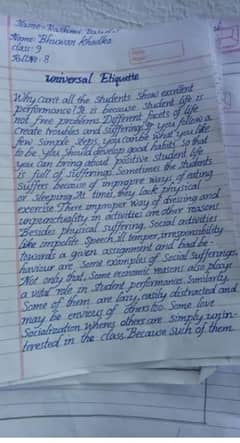 Name:- Bhuwan Khadka
class:- 9
Roll No:- 8
Universal Etiquette
Why can't all the students show excellent
performance? It is because student life is
not free problems. Different facets of life
create troubles and sufferings. If you follow a
few simple steps, you can be what you like
to be. You should develop good habits so that
you can bring about positive student life
is full of sufferings. Sometimes the students
suffers because of improper ways of eating
or sleeping. At times they lack physical
exercise. There improper way of dressing and
unpunctuality in activities are other reasons.
Besides physical suffering, Social activities
like impolite Speech, ill temper, irresponsibility
towards a given assignment and bad be-
haviour are some examples of Social sufferings.
Not only that, Some economic reasons also play
a vital role in student performance. Similarly
Some of them are lazy, easily distracted and
may be envious of others too. Some love
Socialization where others are simply unin-
terested in the class. Because such of them